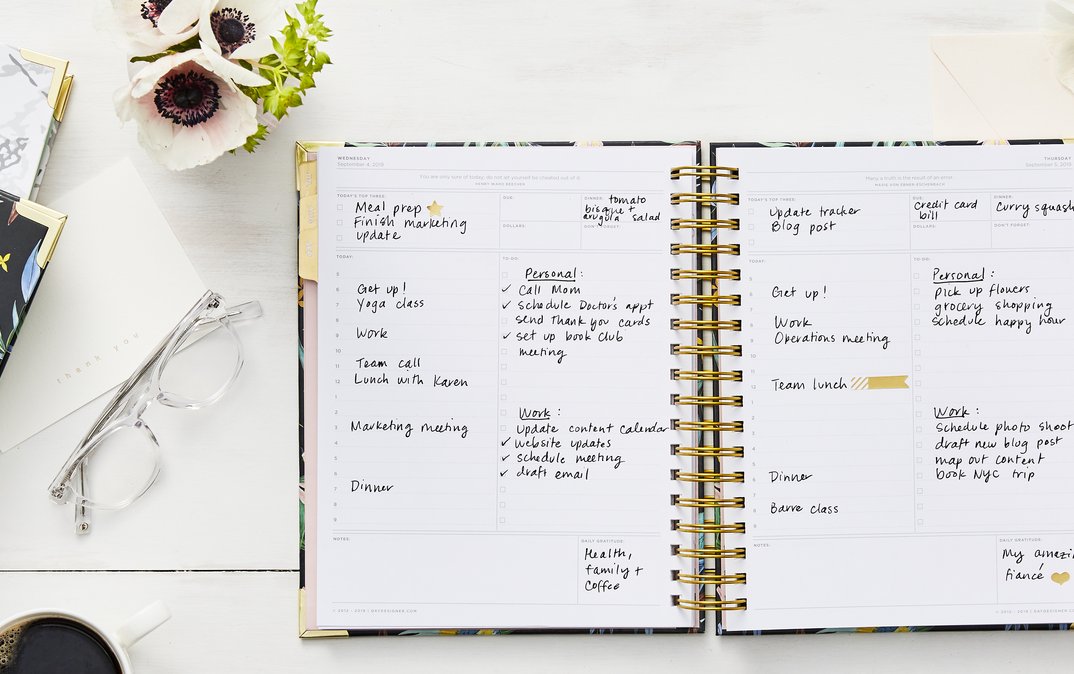 thank you
WEDNESDAY
September 4, 2019
You are only sure of today; do not let yourself be cheated out of it.
HENRY WARD BEECHER
TODAY'S TOP THREE:
Meal prep
Finish marketing
update
DUE:
DOLLARS:
DINNER:
tomato
bisque +
arugula salad
DON'T FORGET:
TODAY:
5
6 Get up!
7 Yoga class
8
9 Work
10
11 Team call
12 Lunch with Karen
1
2
3 Marketing meeting
4
5
6
7 Dinner
8
9
TO-DO:
Personal:
✓ Call Mom
✓ Schedule Doctor's appt
send thank you cards
✓ set up book club
meeting
Work:
update content calendar
✓ website updates
✓ schedule meeting
✓ draft email
NOTES:
DAILY GRATITUDE:
Health,
family +
coffee
© 2010 - 2019 | DAYDESIGNER.COM
THURSDAY
September 5, 2019
Many a truth is the result of an error.
MARIE VON EBNER-ESCHENBACH
TODAY'S TOP THREE:
Update tracker
Blog post
DUE:
credit card
bill
DOLLARS:
DINNER:
Curry squash
DON'T FORGET:
TODAY:
5
6 Get up!
7
8 Work
9 Operations meeting
10
11
12 Team lunch
1
2
3
4
5
6 Dinner
7
8 Barre class
9
TO-DO:
Personal:
pick up flowers
grocery shopping
schedule happy hour
Work:
Schedule photo shoot
draft new blog post
map out content
book NYC trip
NOTES:
DAILY GRATITUDE:
My amazi
fiancé
© 2010 - 2019 | DAYDESIGNER.COM